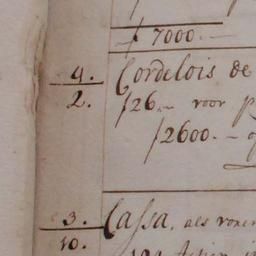 ƒ 7000.-
4. Cordelois de
2. ƒ26.- voor
ƒ2600.-
3. Cassa, als voren
10.